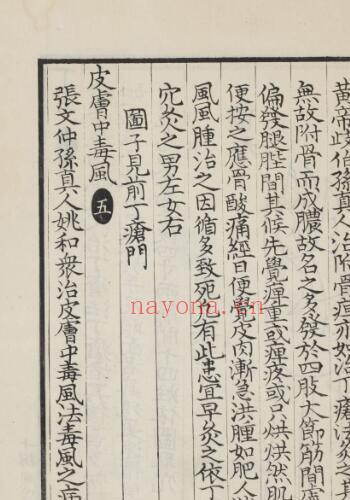 黄帝歧伯孫真人治附骨疽亦如治丁瘡法灸之其
無故附骨而成膿故名之多發於四肢大節筋間
偏發腿䏶間其候先覺痺重或痺疼或只烘烘然肌
便按之應骨酸痛經日便覺皮肉漸急洪腫如肥人
風風腫治之因循多致死也有此患宜早灸之依丁
穴灸之男左女右
圖子見前丁瘡門
皮膚中毒風 五
張文仲孫真人姚和衆治皮膚中毒風法毒風之病
nayona.cn